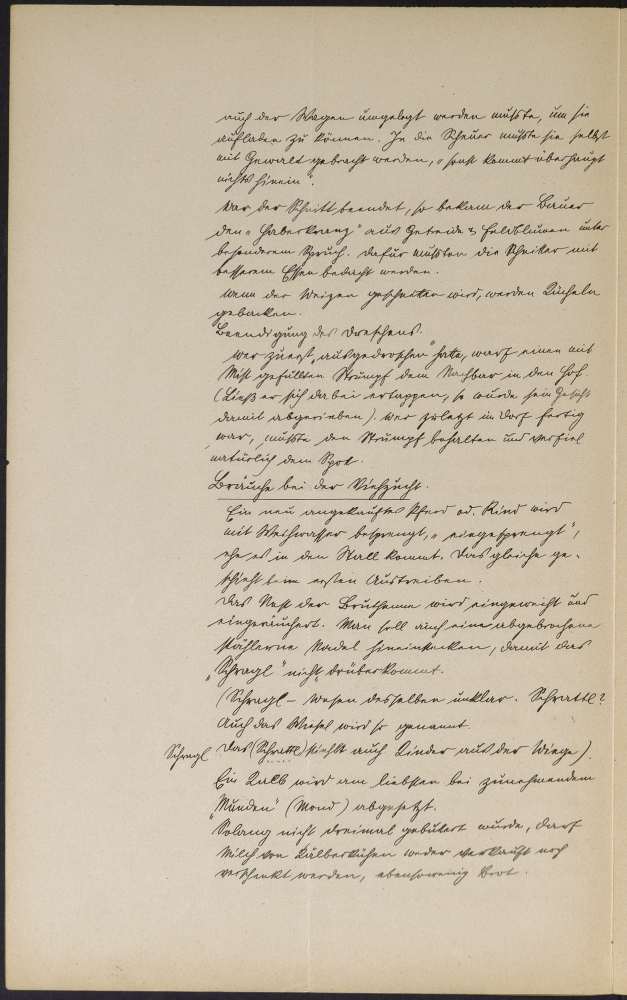 auch der Wagen umgelegt werden mußte, um sie
aufladen zu können. In die Scheuer mußte sie selbst
mit Gewalt gebracht werden, „sonst kommt überhaupt
nichts hinein".
War der Schnitt beendet, so bekam der Bauer
den „Haberkranz" aus Getreide & Feldblumen unter
besonderem Spruch. Dafür mußten die Schnitter mit
besserem Essen bedacht werden.
Wenn der Weizen geschnitten wird, werden Kücheln
gebacken.
Beendigung des Dreschens.
Wer zuerst „ausgedroschen" hatte, warf einen mit
Mist gefüllten Strumpf dem Nachbar in den Hof.
(Ließ er sich dabei ertappen, so wurde sein Gesicht
damit abgerieben). Wer zuletzt im Dorf fertig
war, mußte den Strumpf behalten und verfiel
natürlich dem Spott.
Bräuche bei der Viehzucht.
Ein neu angekauftes Pferd od. Rind wird
mit Weihwasser besprengt, „eingesprengt",
ehe es in den Stall kommt. Das gleiche ge-
schieht beim ersten Austreiben.
Das Nest der Bruthenne wird eingeweiht und
eingeräuchert. Man soll auch eine abgebrochene
stählerne Nadel hineinstecken, damit das
„Schragl" nicht drüberkommt.
(Schragl – Wesen desselben unklar. Schrattl?
Auch das Wiesel wird so genannt.
Schragl Das (Schrattl) stiehlt auch Kinder aus der Wiege).
Ein Kalb wird am liebsten bei zunehmendem
„Munden" (Mond) abgesetzt.
Solang nicht dreimal gebuttert wurde, darf
Milch von Kälberkühen weder verkauft noch
verschenkt werden, ebensowenig Brot.